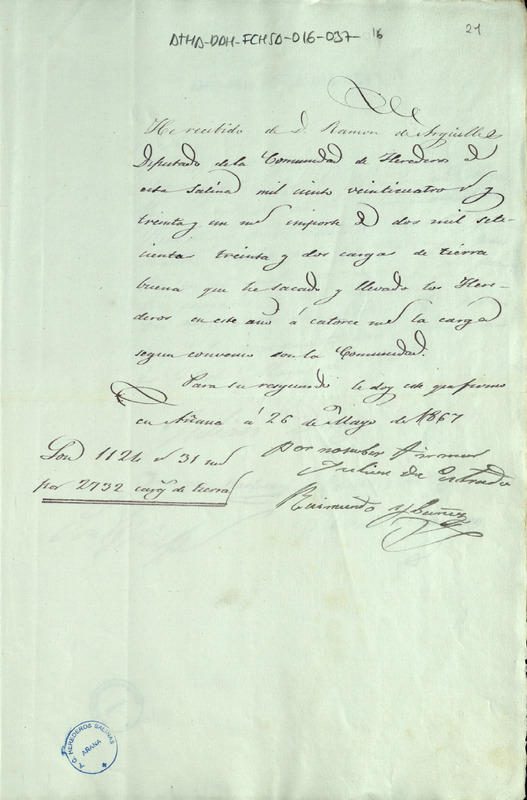 ATHA-DAH-FCHSA-016-037- 16
21
He recibido de D. Ramon de Arguelles
Diputado de la Comunidad de Herederos de
esta Salina mil ciento veinticuatro r. y
treinta y un m. importe de dos mil sete-
cientas treinta y dos cargas de tierra
buena que he sacado y llevado los Here-
deros en este año á catorce m. la carga
segun convenio con la Comunidad.
Para su resguardo le doy este que firmo
en Añana á 26 de Mayo de 1867
Son 1124 r. 31 m.
por 2732 carg. de tierra
Por no saber firmar
Julian de
Raimundo Ybañez
A. G. HEREDEROS SALINAS
AÑANA